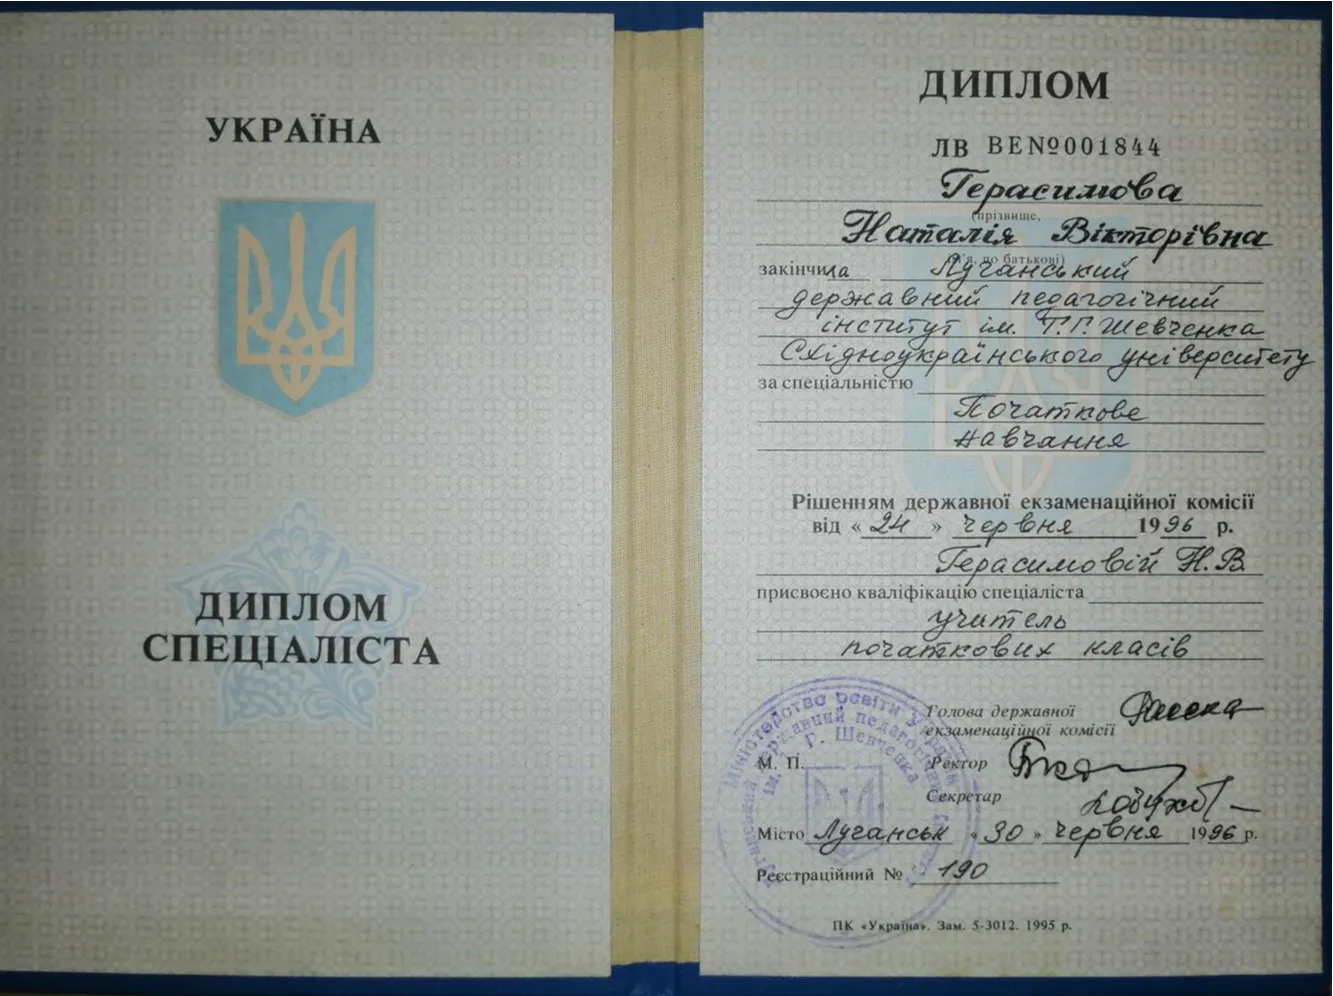 УКРАЇНА
ДИПЛОМ
СПЕЦІАЛІСТА
ДИПЛОМ
ЛВ ВЕ№001844
Герасимова
(прізвище,
Наталія Вікторівна
по батькові)
закінчила Луганський
державний педагогічний
інститут ім. Т.Г. Шевченка
Східноукраїнського університету
за спеціальністю
Початкове
навчання
Рішенням державної екзаменаційної комісії
від «24» червня 1996 р.
Герасимовій Н.В.
присвоєно кваліфікацію спеціаліста
учитель
початкових класів
Голова державної
екзаменаційної комісії
М. П.
Ректор
Секретар
Місто Луганськ «30» червня 1996 р.
Реєстраційний № 190
Міністерство освіти України
державний педагогічний
ім. Т. Г. Шевченка
ПК «Україна». Зам. 5-3012. 1995 р.